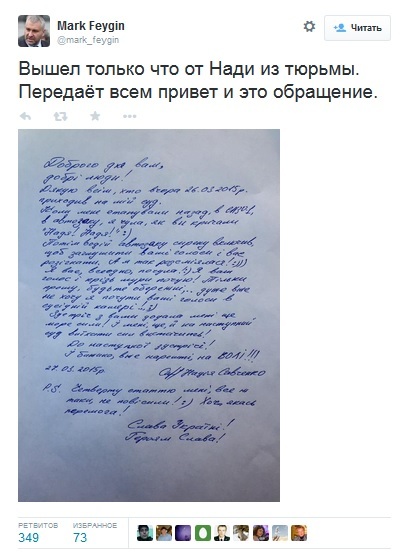 Mark Feygin
@mark_feygin
Читать
Вышел только что от Нади из тюрьмы.
Передаёт всем привет и это обращение.
Доброго дня вам,
добрі люди!
Дякую всім, хто вчора 26.03.2015р.
приходив на мій суд.
Коли мене етапували назад, в СИЗО,
в автозаку, я чула, як ви кричали
"Надя! Надя!" :)
Потім водій автозаку сирену включив,
щоб заглушити ваші голоси і вас
розігнати, а я так розсміялася! :)))
Я вас, всеодно, почула! :) Я ваш
голос і крізь мури почую! Тільки
прошу, будьте обережні... дуже вже
не хочу я почути ваші голоси в
сусідній камері... :)
Зустріч з вами додала мені ще
море сили! І мені, ще й на наступний
суд виїхати сил вистачить!
До наступної зустрічі!
І бажано, вже нарешті, на ВОЛІ!!!
27.03.2015р. Надія Савченко
P.S. Четверту статтю мені, все ж
таки, не повісили! :) Хоч якась
перемога!
Слава Україні!
Героям Слава!
РЕТВИТОВ ИЗБРАННОЕ
349 73